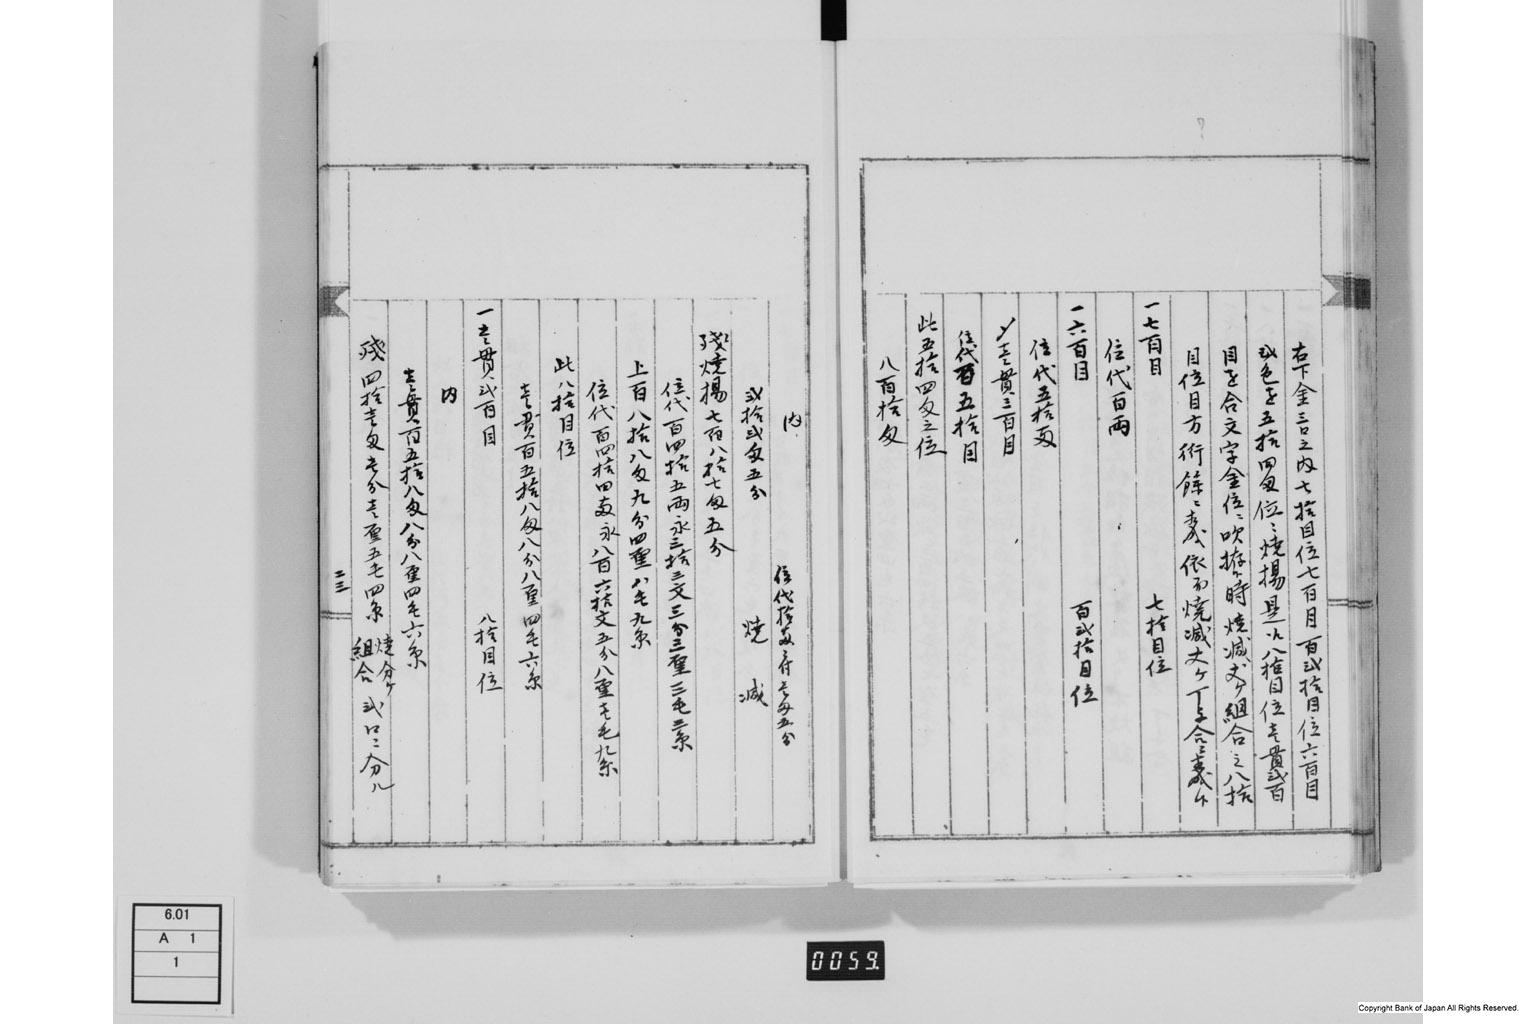 右下金三口之内七拾目位七百目百弐拾目位六百目
弐色を五拾四匁位ニ焼揚是ヘ八拾目位壱貫弐百
目を合文字金位ニ吹拵ヶ時焼減丈ヶ組合之八拾
目位目方術餘ニ
一七百目 七拾目位
位代百両
一六百目 百弐拾目位
位代五拾両
〆壱貫三百目
位代百五拾目
此五拾四匁之位
八百拾匁
内
位代拾両
弐拾弐匁五分 焼減
残焼揚七百八拾七匁五分
位代百四拾五両永三拾三文三分三厘三毛三糸
上百八拾八匁九分四厘八毛九糸
位代百四拾四両永八百六拾文五分八厘
此八拾目位
壱貫百五拾八匁八分八厘四毛六糸
一壱貫弐百目 八拾目位
内
壱貫百五拾八匁八分八厘四毛六糸
残四拾壱匁壱分壱厘五毛四糸 焼分ヶ組合弐口ニ分ル
二三
6.01
A 1
1
0059.
Copyright Bank of Japan All Rights Reserved.